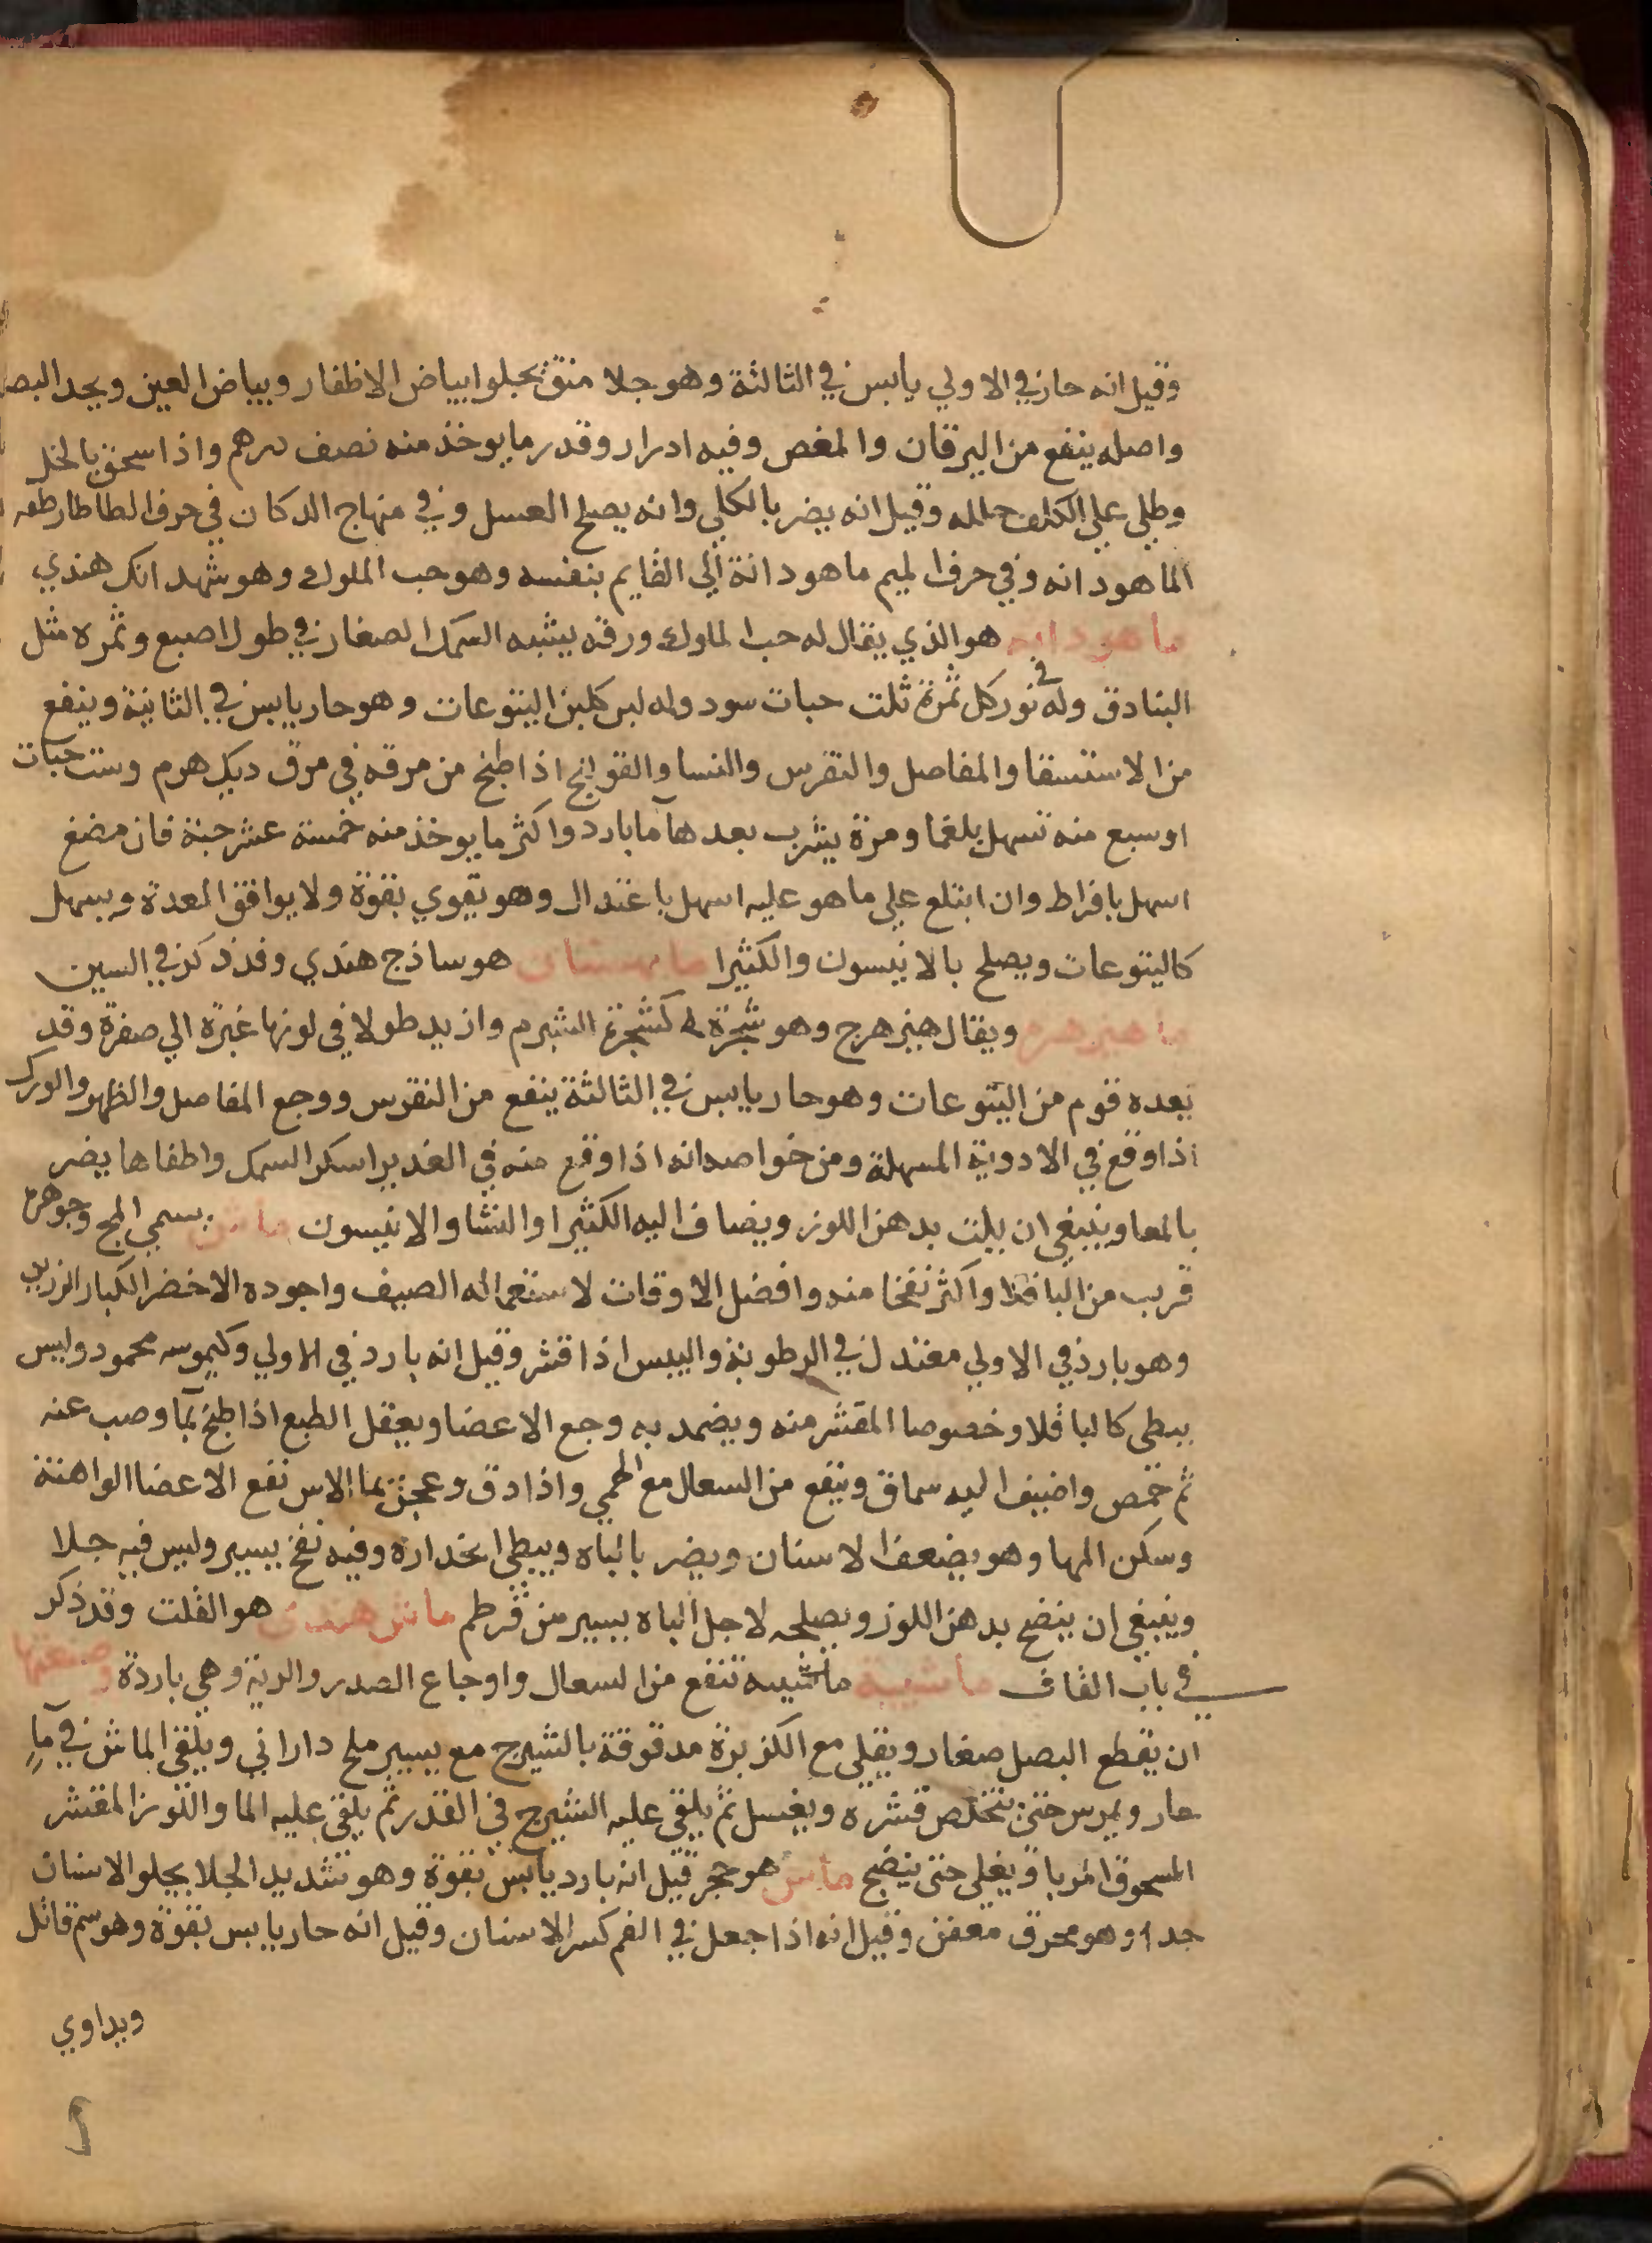 وقيل انه حار في الاولي يابس في الثالثة وهو جلا منق يجلوا بياض الاظفار وبياض العين ويحد البصر
واصله ينفع من اليرقان والمغص وفيه ادرار وقدر ما يوخذ منه نصف درهم واذا سحق بالخل
وطلي علي الكلف حلله وقيل انه يضر بالكلي وانه يصلح العسل وفي منهاج الدكان في حرف الطا طارطقه
الماهودانه وفي حرف الميم ماهودانة الي القايم بنفسه وهو حب الملوك وهو شهدانك هندي
ماهودانه هو الذي يقال له حب الملوك ورقه يشبه السمك الصغار في طول اصبع وثمره مثل
البنادق وله في نور كل ثمرة ثلث حبات سود وله لبن كلبن اليتوعات وهو حار يابس في الثانية وينفع
من الاستسقا والمفاصل والنقرس والنسا والقولنج اذا طبخ من مرقه في مرق ديك هرم وست حبات
او سبع منه تسهل بلغما ومرة يشرب بعدها ما بارد واكثر ما يوخذ منه خمسة عشر حبة فان مضغ
اسهل بافراط وان ابتلع علي ما هو عليه اسهل باعتدال وهو يقوي بقوة ولا يوافق المعدة ويسهل
كاليتوعات ويصلح بالانيسون والكثيرا هو ساذج هندي وقد ذكر في السين
ماهيزهره ويقال هيزهرج وهو شجرة كشجرة الشبرم وازيد طولا في لونها غبرة الي صفرة وقد
يعده قوم من اليتوعات وهو حار يابس في الثالثة ينفع من النقرس ووجع المفاصل والظهر والورك
اذا وقع في الادوية المسهلة ومن خواصه انه اذا وقع منه في الغدير اسكر السمك واطفاها يضر
بالمعا وينبغي ان يلت بدهن اللوز ويضاف اليه الكثيرا والنشا والانيسون ماش يسمي المج وجوهره
قريب من الباقلا واكثر نفخا منه وافضل الاوقات لاستعماله الصيف واجوده الاخضر الكبار الرزين
وهو بارد في الاولي معتدل في الرطوبة واليبس اذا قشر وقيل انه بارد في الاولي وكيموسه محمود وليس
يبطي كالباقلا وخصوصا المقشر منه ويضمد به وجع الاعضا ويعقل الطبع اذا طبخ بما وصب عنه
ثم حمص واضيف اليه سماق وينفع من السعال مع الحمي واذا دق وعجن بما الاس نفع الاعضا الواهنة
وسكن المها وهو يضعف الاسنان ويضر بالباه ويبطي انحداره وفيه نفخ يسير وليس فيه جلا
وينبغي ان ينضج بدهن اللوز ويصلحه لاجل الباه يسير من قرطم ماش هندي هو القلت وقد ذكر
في باب القاف ماشيه ماشيه تنفع من السعال واوجاع الصدر والرية وهي باردة وصنعتها
ان يقطع البصل صغار ويقلي مع الكزبرة مدقوقة بالشيرج مع يسير ملح داراني ويلقي الماش في ماء
حار ويمرس حتي يتخلص قشره ويغسل ثم يلقي عليه الشيرج في القدر ثم يلقي عليه الما واللوز المقشر
المسحوق المربا ويغلي حتي ينضج ماس هو حجر قيل انه بارد يابس بقوة وهو شديد الجلا يجلو الاسنان
جدا وهو محرق معفن وقيل انه اذا جعل في الفم كسر الاسنان وقيل انه حار يابس بقوة وهو سم قاتل
ويداوي